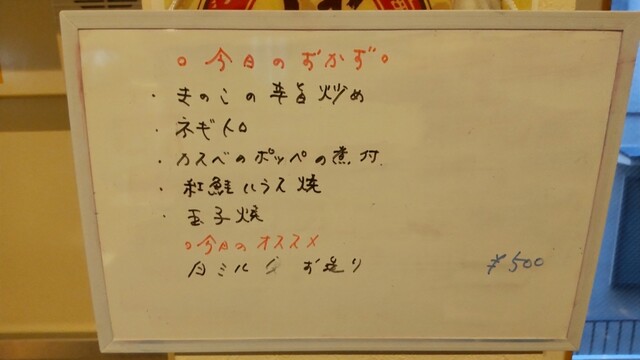 ○今日のおかず○
・きのこの辛旨炒め
・ネギトロ
・カスベのポッペの煮付
・紅鮭ハラス焼
・玉子焼
○今日のオススメ
白ミル お造り ¥500